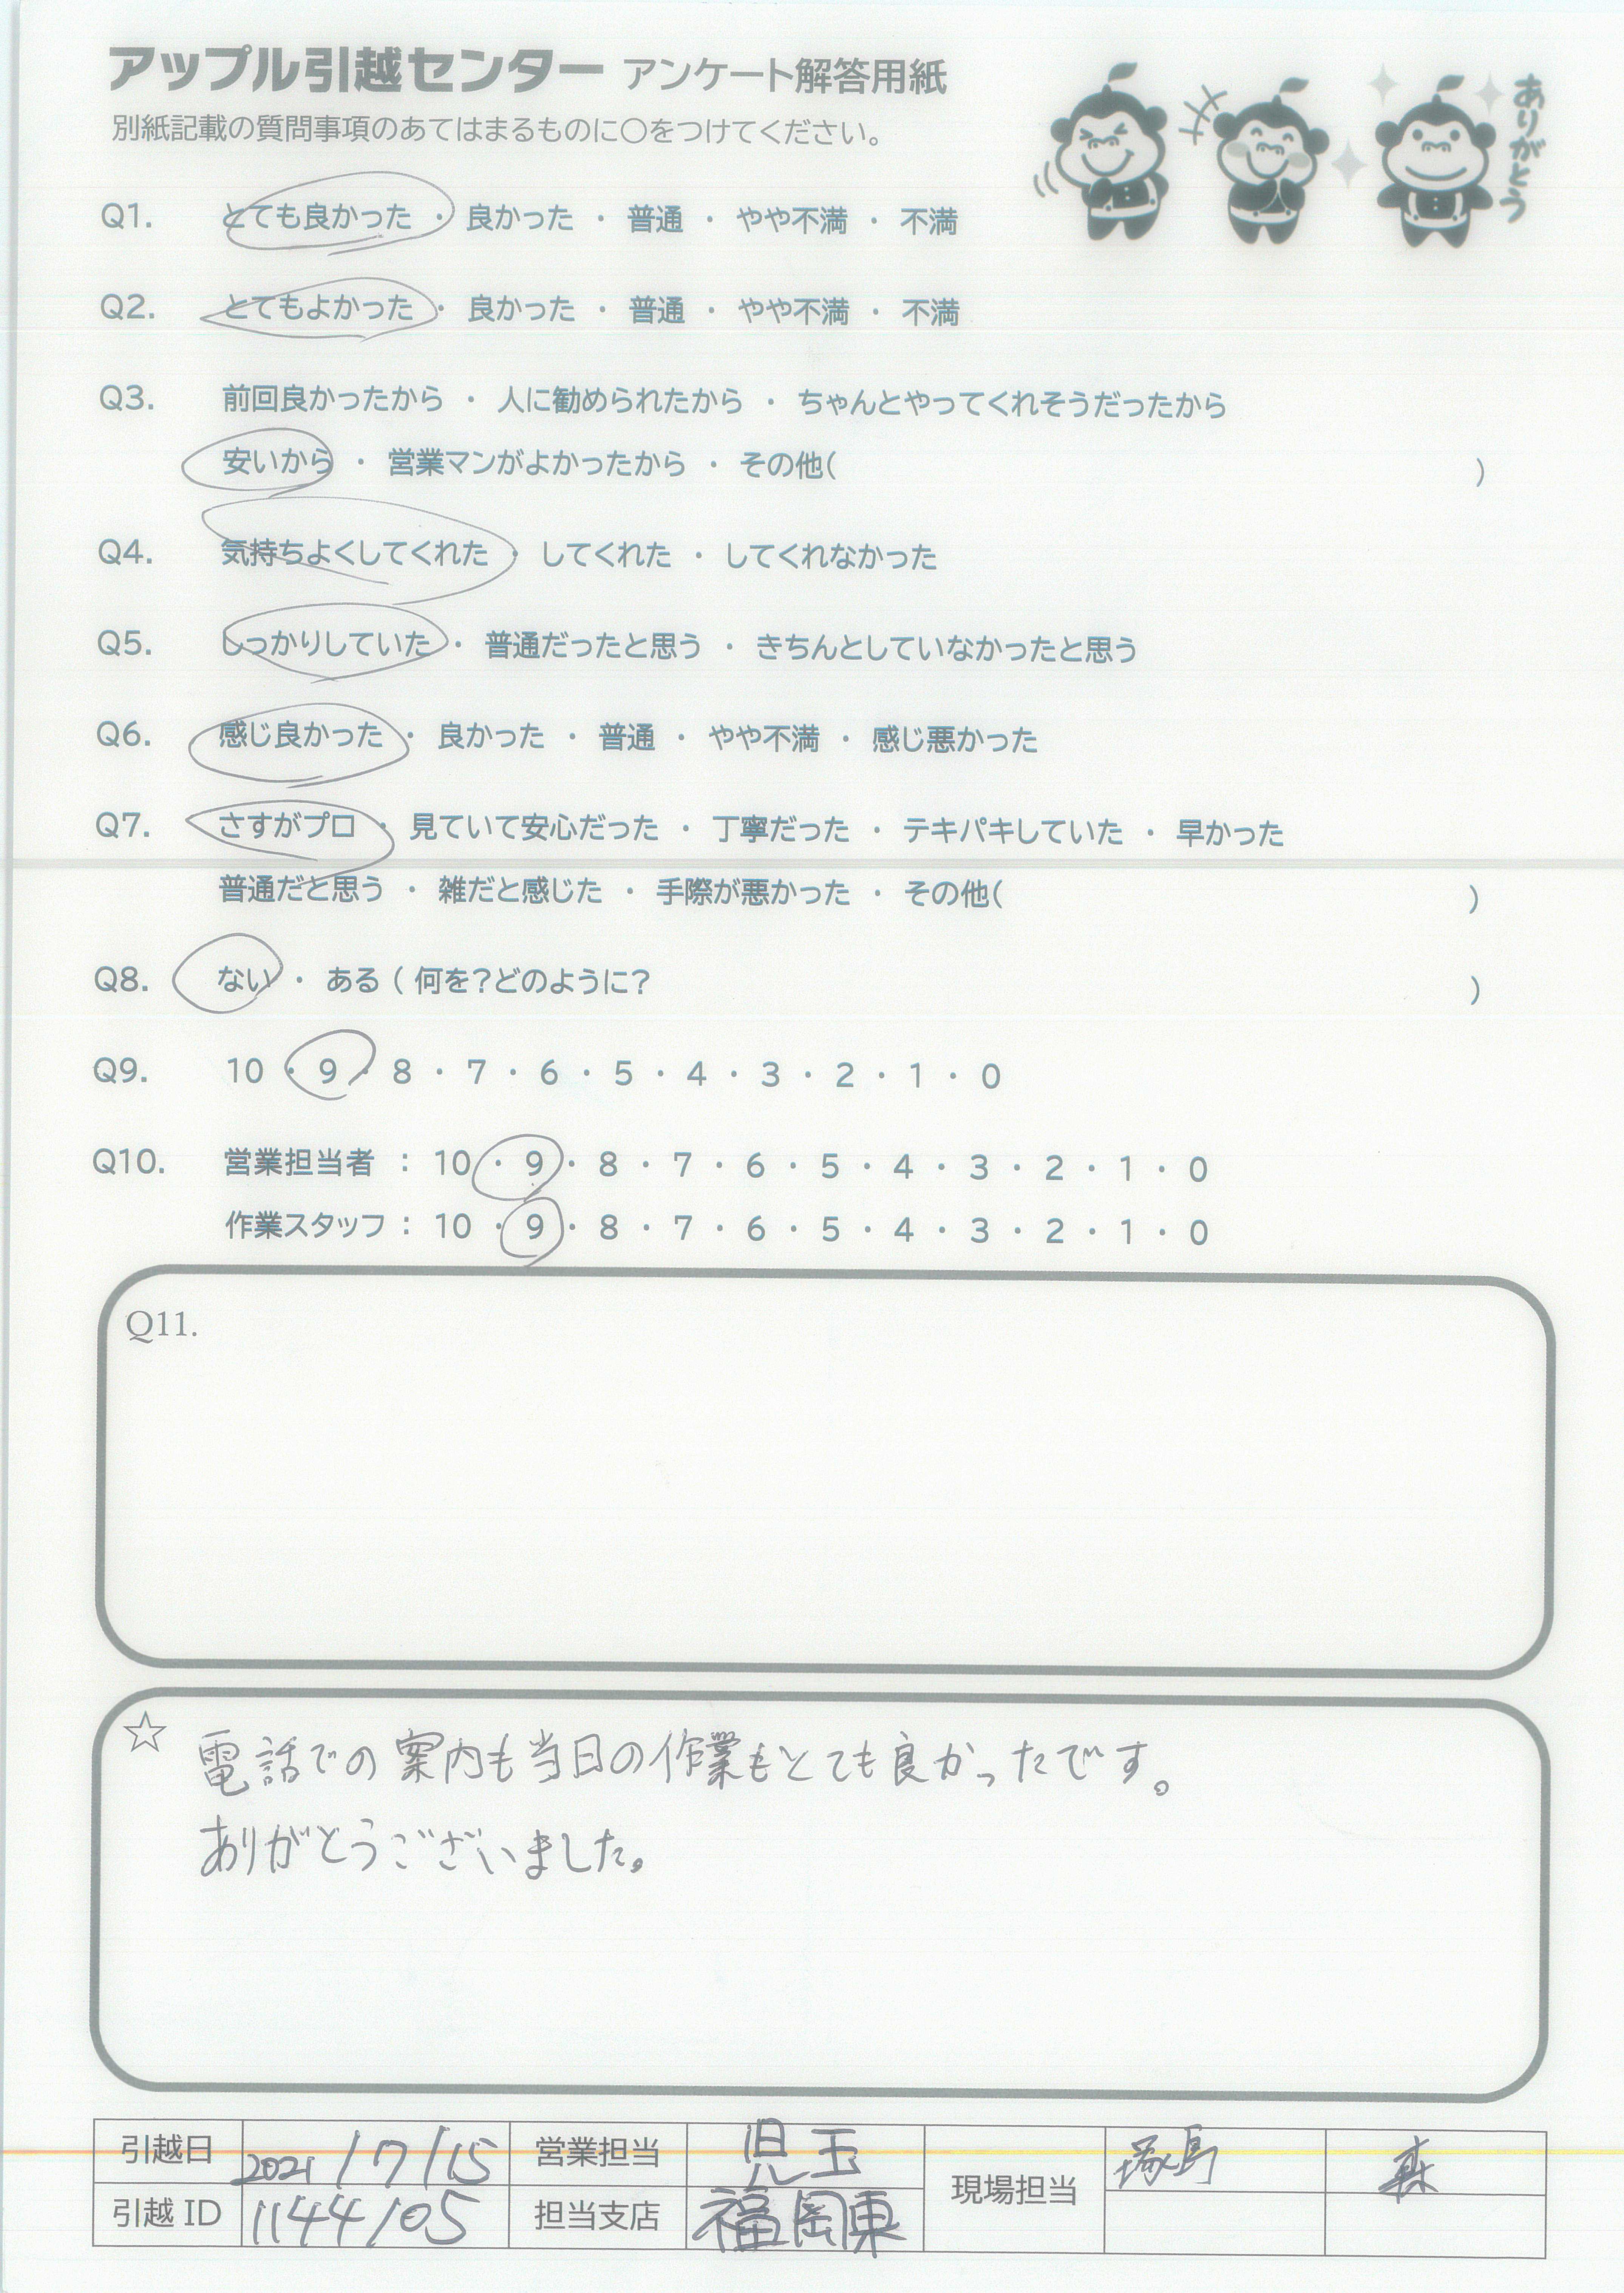 アップル引越センター アンケート解答用紙
ありがとう
別紙記載の質問事項のあてはまるものに〇をつけてください。
Q1. とても良かった ・ 良かった ・ 普通 ・ やや不満 ・ 不満
Q2. とてもよかった ・ 良かった ・ 普通 ・ やや不満 ・ 不満
Q3. 前回良かったから ・ 人に勧められたから ・ ちゃんとやってくれそうだったから
安いから ・ 営業マンがよかったから ・ その他( )
Q4. 気持ちよくしてくれた ・ してくれた ・ してくれなかった
Q5. しっかりしていた ・ 普通だったと思う ・ きちんとしていなかったと思う
Q6. 感じ良かった ・ 良かった ・ 普通 ・ やや不満 ・ 感じ悪かった
Q7. さすがプロ ・ 見ていて安心だった ・ 丁寧だった ・ テキパキしていた ・ 早かった
普通だと思う ・ 雑だと感じた ・ 手際が悪かった ・ その他( )
Q8. ない ・ ある ( 何を?どのように? )
Q9. 10 ・ 9 ・ 8 ・ 7 ・ 6 ・ 5 ・ 4 ・ 3 ・ 2 ・ 1 ・ 0
Q10. 営業担当者 : 10 ・ 9 ・ 8 ・ 7 ・ 6 ・ 5 ・ 4 ・ 3 ・ 2 ・ 1 ・ 0
作業スタッフ : 10 ・ 9 ・ 8 ・ 7 ・ 6 ・ 5 ・ 4 ・ 3 ・ 2 ・ 1 ・ 0
Q11.
☆ 電話での案内も当日の作業もとても良かったです。
ありがとうございました。
引越日 2021/7/15 営業担当 児玉 現場担当 塚島 森
引越 ID 1144105 担当支店 福岡東